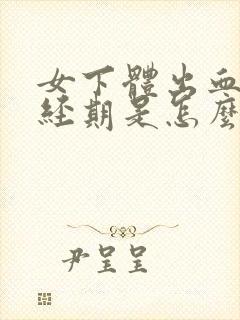 女下體出血
經期是怎麼
尹呈呈